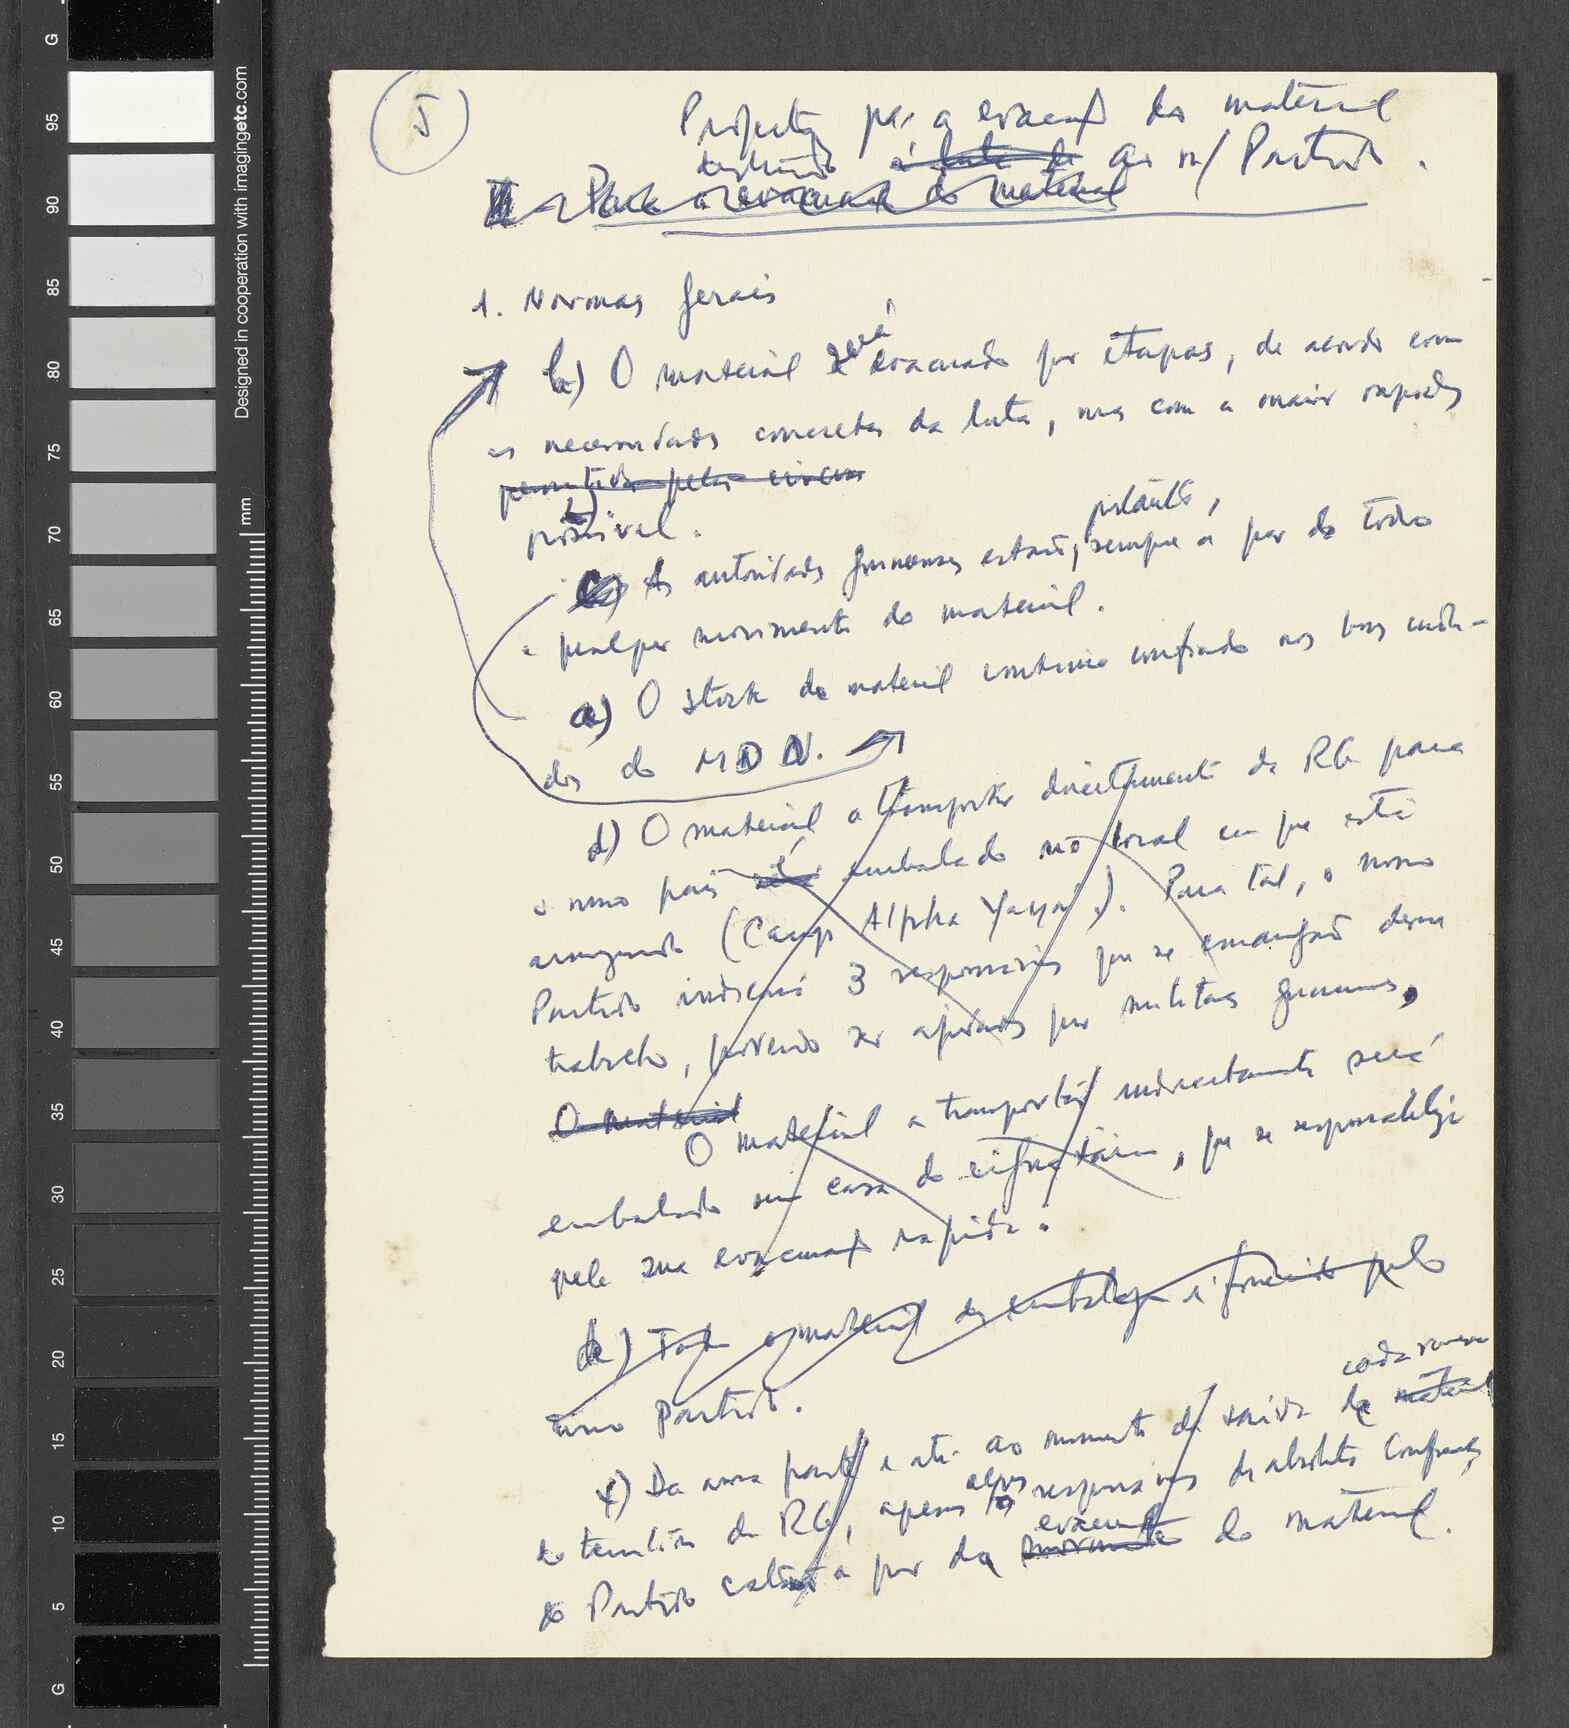 5
Projecto para a evacuação do material
destinado à luta de ao n/ Partido.
II - Para a evacuação do material
1. Normas gerais
b) O material será evacuado por etapas, de acordo com
as necessidades concretas da luta, mas com a maior rapidez
permitida pelas
possível.
c) As autoridades guineenses estarão, portanto, sempre a par de todo
e qualquer movimento do material.
a) O stock de material continua confiado aos bons cuida-
dos do MDN.
d) O material a transportar directamente da RG para
o nosso país é embalado no local em que está
armazenado (Camp Alpha Yaya). Para tal, o nosso
Partido indicará 3 responsáveis que se encarregarão desse
trabalho, podendo ser ajudados por militares guineenses,
O material
O material a transportar indirectamente será
embalado em casa do, que se responsabiliza
pela sua evacuação rápida.
e) Todo o material de embalagem é fornecido pelo
nosso Partido.
f) Da nossa parte e até ao momento da saída de cada remessa material
do território da RG, apenas alguns os responsáveis de absoluta confiança
do Partido estarão a par da evacuação movimento do material.
G
95
90
85
80
75
70
65
60
55
50
45
40
35
30
25
20
15
10
5
G
mm
Designed in cooperation with imagingetc.com